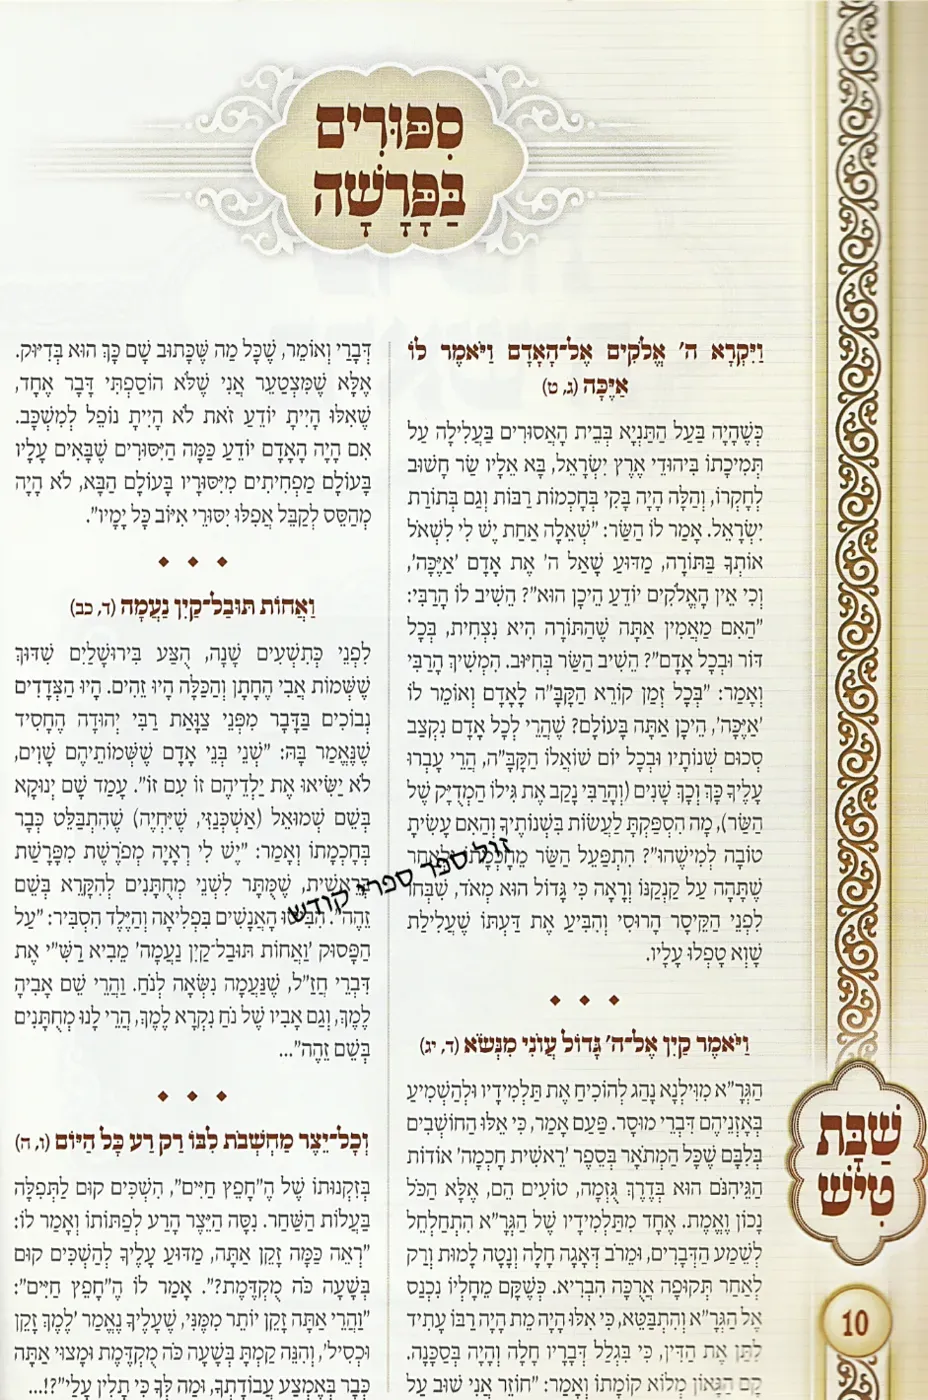 סִפּוּרִים
בַּפָּרָשָׁה
וַיִּקְרָא ה' אֱלֹקִים אֶל־הָאָדָם וַיֹּאמֶר לוֹ
אַיֶּכָּה (ג, ט)
כְּשֶׁהָיָה בַּעַל הַתַּנְיָא בְּבֵית הָאֲסוּרִים בַּעֲלִילָה עַל
תְּמִיכָתוֹ בִּיהוּדֵי אֶרֶץ יִשְׂרָאֵל, בָּא אֵלָיו שַׂר חָשׁוּב
לְחָקְרוֹ, וְהַלָּה הָיָה בָּקִי בְּחָכְמוֹת רַבּוֹת וְגַם בְּתוֹרַת
יִשְׂרָאֵל. אָמַר לוֹ הַשַּׂר: "שְׁאֵלָה אַחַת יֵשׁ לִי לִשְׁאֹל
אוֹתְךָ בַּתּוֹרָה, מַדּוּעַ שָׁאַל ה' אֶת אָדָם 'אַיֶּכָּה',
וְכִי אֵין הָאֱלֹקִים יוֹדֵעַ הֵיכָן הוּא"? הֵשִׁיב לוֹ הָרַבִּי:
"הַאִם מַאֲמִין אַתָּה שֶׁהַתּוֹרָה הִיא נִצְחִית, בְּכָל
דּוֹר וּבְכָל אָדָם"? הֵשִׁיב הַשַּׂר בְּחִיּוּב. הִמְשִׁיךְ הָרַבִּי
וְאָמַר: "בְּכָל זְמַן קוֹרֵא הַקָּבָּ"ה לָאָדָם וְאוֹמֵר לוֹ
'אַיֶּכָּה', הֵיכָן אַתָּה בָּעוֹלָם? שֶׁהֲרֵי לְכָל אָדָם נִקְצַב
סְכוּם שְׁנוֹתָיו וּבְכָל יוֹם שׁוֹאֲלוֹ הַקָּבָּ"ה, הֲרֵי עָבְרוּ
עָלֶיךָ כָּךְ וְכָךְ שָׁנִים (וְהָרַבִּי נָקַב אֶת גִּילוֹ הַמְדֻיָּק שֶׁל
הַשַּׂר), מָה הִסְפַּקְתָּ לַעֲשׂוֹת בִּשְׁנוֹתֶיךָ וְהַאִם עָשִׂיתָ
טוֹבָה לְמִישֶׁהוּ"? הִתְפַּעֵל הַשַּׂר מֵחָכְמָתוֹ וּלְאַחַר
שֶׁתָּהָה עַל קַנְקַנּוֹ וְרָאָה כִּי גָּדוֹל הוּא מְאֹד, שִׁבְּחוֹ
לִפְנֵי הַקֵּיסָר הָרוּסִי וְהִבִּיעַ אֶת דַּעְתּוֹ שֶׁעֲלִילַת
שָׁוְא טָפְלוּ עָלָיו.
וַיֹּאמֶר קַיִן אֶל־ה' גָּדוֹל עֲוֹנִי מִנְּשֹׂא (ד, יג)
הַגְּרָ"א מִוִּילְנָא נָהַג לְהוֹכִיחַ אֶת תַּלְמִידָיו וּלְהַשְׁמִיעַ
בְּאָזְנֵיהֶם דִּבְרֵי מוּסָר. פַּעַם אָמַר, כִּי אֵלּוּ הַחוֹשְׁבִים
בְּלִבָּם שֶׁכָּל הַמְתֹאָר בְּסֵפֶר 'רֵאשִׁית חָכְמָה' אוֹדוֹת
הַגֵּיהִנֹּם הוּא בְּדֶרֶךְ גֻּזְמָה, טוֹעִים הֵם, אֶלָּא הַכֹּל
נָכוֹן וֶאֱמֶת. אֶחָד מִתַּלְמִידָיו שֶׁל הַגְּרָ"א הִתְחַלְחֵל
לְשֵׁמַע הַדְּבָרִים, וּמֵרֹב דְּאָגָה חָלָה וְנָטָה לָמוּת וְרַק
לְאַחַר תְּקוּפָה אֲרֻכָּה הִבְרִיא. כְּשֶׁקָּם מֵחָלְיוֹ נִכְנַס
אֶל הַגְּרָ"א וְהִתְבַּטֵּא, כִּי אִלּוּ הָיָה מֵת הָיָה רַבּוֹ עָתִיד
לִתֵּן אֶת הַדִּין, כִּי בִּגְלַל דְּבָרָיו חָלָה וְהָיָה בְּסַכָּנָה.
קָם הַגָּאוֹן מְלוֹא קוֹמָתוֹ וְאָמַר: "חוֹזֵר אֲנִי שׁוּב עַל
דְּבָרַי וְאוֹמֵר, שֶׁכָּל מַה שֶּׁכָּתוּב שָׁם כָּךְ הוּא בְּדִיּוּק.
אֶלָּא שֶׁמִּצְטַעֵר אֲנִי שֶׁלֹּא הוֹסַפְתִּי דָּבָר אֶחָד,
שֶׁאִלּוּ הָיִיתָ יוֹדֵעַ זֹאת לֹא הָיִיתָ נוֹפֵל לְמִשְׁכָּב.
אִם הָיָה הָאָדָם יוֹדֵעַ כַּמָּה הַיִּסּוּרִים שֶׁבָּאִים עָלָיו
בָּעוֹלָם מַפְחִיתִים מִיִּסּוּרָיו בָּעוֹלָם הַבָּא, לֹא הָיָה
מְהַסֵּס לְקַבֵּל אֲפִלּוּ יִסּוּרֵי אִיּוֹב כָּל יָמָיו".
וַאֲחוֹת תּוּבַל־קַיִן נַעֲמָה (ד, כב)
לִפְנֵי כְּתִשְׁעִים שָׁנָה, הֻצַּע בִּירוּשָׁלַיִם שִׁדּוּךְ
שֶׁשְּׁמוֹת אֲבִי הֶחָתָן וְהַכַּלָּה הָיוּ זֵהִים. הָיוּ הַצְּדָדִים
נְבוֹכִים בַּדָּבָר מִפְּנֵי צַוָּאַת רַבִּי יְהוּדָה הֶחָסִיד
שֶׁנֶּאֱמַר בָּהּ: "שְׁנֵי בְּנֵי אָדָם שֶׁשְּׁמוֹתֵיהֶם שָׁוִים,
לֹא יַשִּׂיאוּ אֶת יַלְדֵיהֶם זוֹ עִם זוֹ". עָמַד שָׁם יְנוּקָא
בְּשֵׁם שְׁמוּאֵל (אַשְׁכְּנַזִּי, שֶׁיִּחְיֶה) שֶׁהִתְבַּלֵּט כְּבָר
בְּחָכְמָתוֹ וְאָמַר: "יֵשׁ לִי רְאָיָה מְפֹרֶשֶׁת מִפָּרָשַׁת
בְּרֵאשִׁית, שֶׁמֻּתָּר לִשְׁנֵי מְחֻתָּנִים לְהִקָּרֵא בְּשֵׁם
זֵהֶה". הִבִּיטוּ הָאֲנָשִׁים בִּפְלִיאָה וְהַיֶּלֶד הִסְבִּיר: "עַל
הַפָּסוּק 'וַאֲחוֹת תּוּבַל־קַיִן נַעֲמָה' מֵבִיא רַשִׁ"י אֶת
דִּבְרֵי חֲזַ"ל, שֶׁנַּעֲמָה נִשְּׂאָה לְנֹחַ. וַהֲרֵי שֵׁם אָבִיהָ
לֶמֶךְ, וְגַם אָבִיו שֶׁל נֹחַ נִקְרָא לֶמֶךְ, הֲרֵי לָנוּ מְחֻתָּנִים
בְּשֵׁם זֵהֶה"...
וְכָל־יֵצֶר מַחְשְׁבֹת לִבּוֹ רַק רַע כָּל הַיּוֹם (ו, ה)
בְּזִקְנוּתוֹ שֶׁל הֶ"חָפֵץ חַיִּים", הִשְׁכִּים קוּם לַתְּפִלָּה
בַּעֲלוֹת הַשַּׁחַר. נִסָּה הַיֵּצֶר הָרָע לְפַתּוֹתוֹ וְאָמַר לוֹ:
"רְאֵה כַּמָּה זָקֵן אַתָּה, מַדּוּעַ עָלֶיךָ לְהַשְׁכִּים קוּם
בְּשָׁעָה כֹּה מֻקְדֶּמֶת?". אָמַר לוֹ הֶ"חָפֵץ חַיִּים":
"וַהֲרֵי אַתָּה זָקֵן יוֹתֵר מִמֶּנִּי, שֶׁעָלֶיךָ נֶאֱמַר 'לְמֶךְ זָקֵן
וּכְסִיל', וְהִנֵּה קַמְתָּ בְּשָׁעָה כֹּה מֻקְדֶּמֶת וּמָצוּי אַתָּה
כְּבָר בְּאֶמְצַע עֲבוֹדָתְךָ, וּמַה לְּךָ כִּי תָלִין עָלַי"?!...
זול ספר ספרי קודש
שַׁבָּת
טִישׁ
10